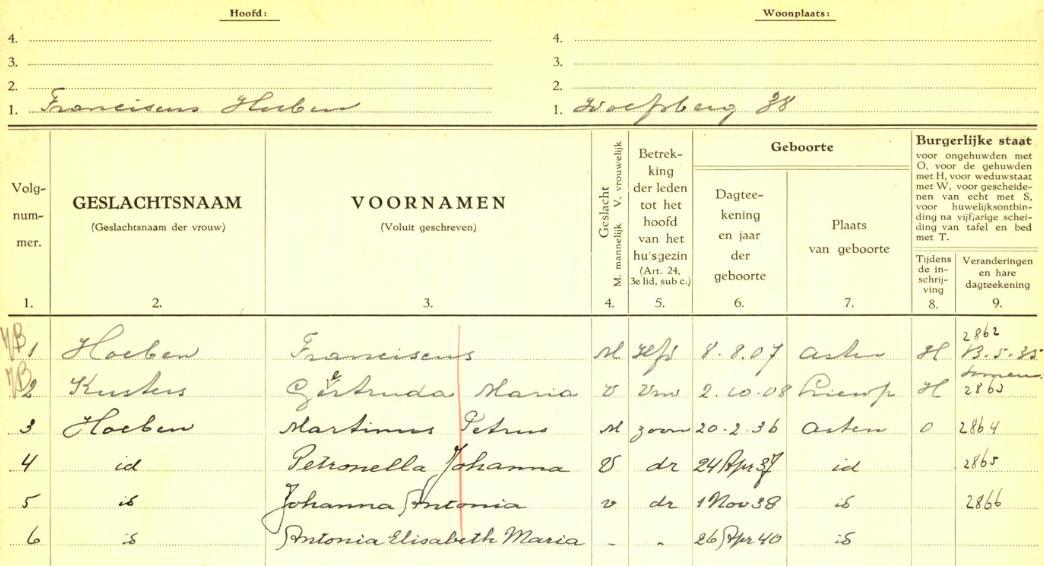 Hoofd: Woonplaats:
4. 4.
3. 3.
2. 2.
1. Franciscus Hoeben 1. Wolfsberg 38
Volg-
num-
mer.
1.
GESLACHTSNAAM
(Geslachtsnaam der vrouw)
2.
VOORNAMEN
(Voluit geschreven)
3.
Geslacht
M. mannelijk V. vrouwelijk
4.
Betrek-
king
der leden
tot het
hoofd
van het
hu'sgezin
(Art. 24,
3e lid, sub c.)
5.
Geboorte
Dagtee-
kening
en jaar
der
geboorte
6.
Plaats
van geboorte
7.
Burgerlijke staat
voor ongehuwden met
O, voor de gehuwden
met H, voor weduwstaat
met W, voor gescheide-
nen van echt met S,
voor huwelijksontbin-
ding na vijfjarige schei-
ding van tafel en bed
met T.
Tijdens
de in-
schrij-
ving
8.
Veranderingen
en hare
dagteekening
9.
1 Hoeben Franciscus M Hfd 8.8.07 Asten H 2862 13.5.35
2 Kusters Gertruda Maria V Vrw 2.10.08 H Someren 2863
3 Hoeben Martinus Petrus M zoon 20.2.36 Asten O 2864
4 id Petronella Johanna V dr 24 Apr 37 id 2865
5 id Johanna Antonia v dr 1 Nov 38 id 2866
6 id Antonia Elisabeth Maria - " 26 Apr 40 id